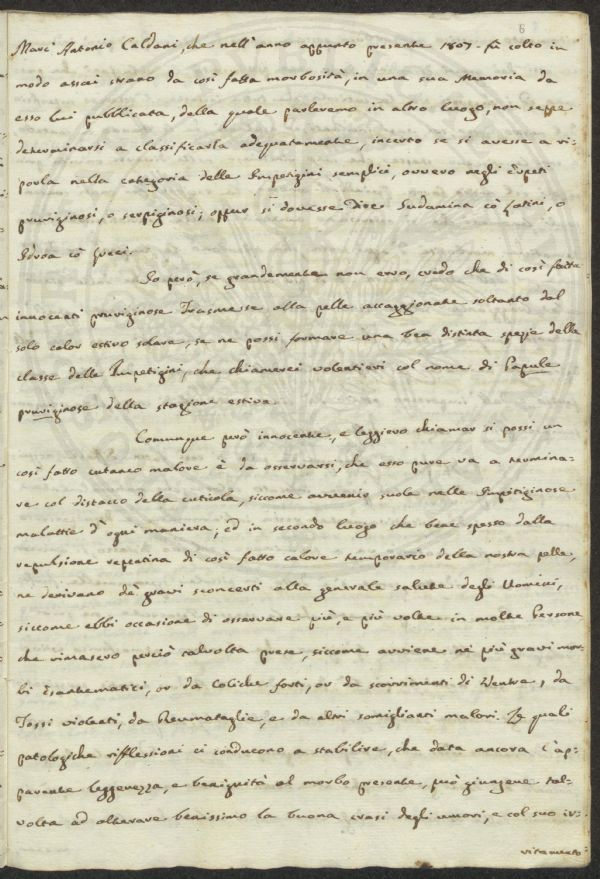 6
Marc' Antonio Caldani, che nell'anno appunto presente 1807. fù colto in
modo assai strano da così fatta morbosità, in una sua Memoria da
esso lui pubblicata, della quale parleremo in altro luogo, non seppe
determinarsi a classificarla adeguatamente, incerto se si avesse a ri-
porla nella categoria delle Impetigini semplici, ovvero negli Erpeti
pruriginosi, o serpiginosi; oppur si dovesse dire Sudamina cò Latini, o
Idroa cò Greci.
Io però, se grandemente non erro, credo che di così fatte
innocenti pruriginose trasmesse alla pelle accaggionate soltanto dal
solo calor estivo solare, se ne possi formare una ben distinta spezie della
classe delle Impetigini, che chiamerei volentieri col nome di Papule
pruriginose della stagione estiva.
Comunque però innocente, e leggiero chiamar si possi un
così fatto cutaneo malore è da osservarsi, che esso pure va a termina-
re col distacco della cuticola, siccome avvenir suole nelle Impetiginose
malattie d'ogni maniera; ed in secondo luogo che bene spesso dalla
repulsione repentina di così fatto calore temporario della nostra pelle,
ne derivano dè gravi sconcerti alla generale salute degli Uomini,
siccome ebbi occasione di osservare più, e più volte in molte Persone
che rimasero perciò talvolta prese, siccome avviene nè più gravi mor-
bi Esanthematici, or da Coliche forti, or da scorrimenti di Ventre, da
Tossi violenti, da Reumataglie, e da altri somiglianti malori. Le quali
patologiche riflessioni ci conducono a stabilire, che data ancora l'ap-
parente leggerezza, e benignità al morbo presente, può giungere tal-
volta ad alterare benissimo la buona crasi degli umori, e col suo ir-
ritamento